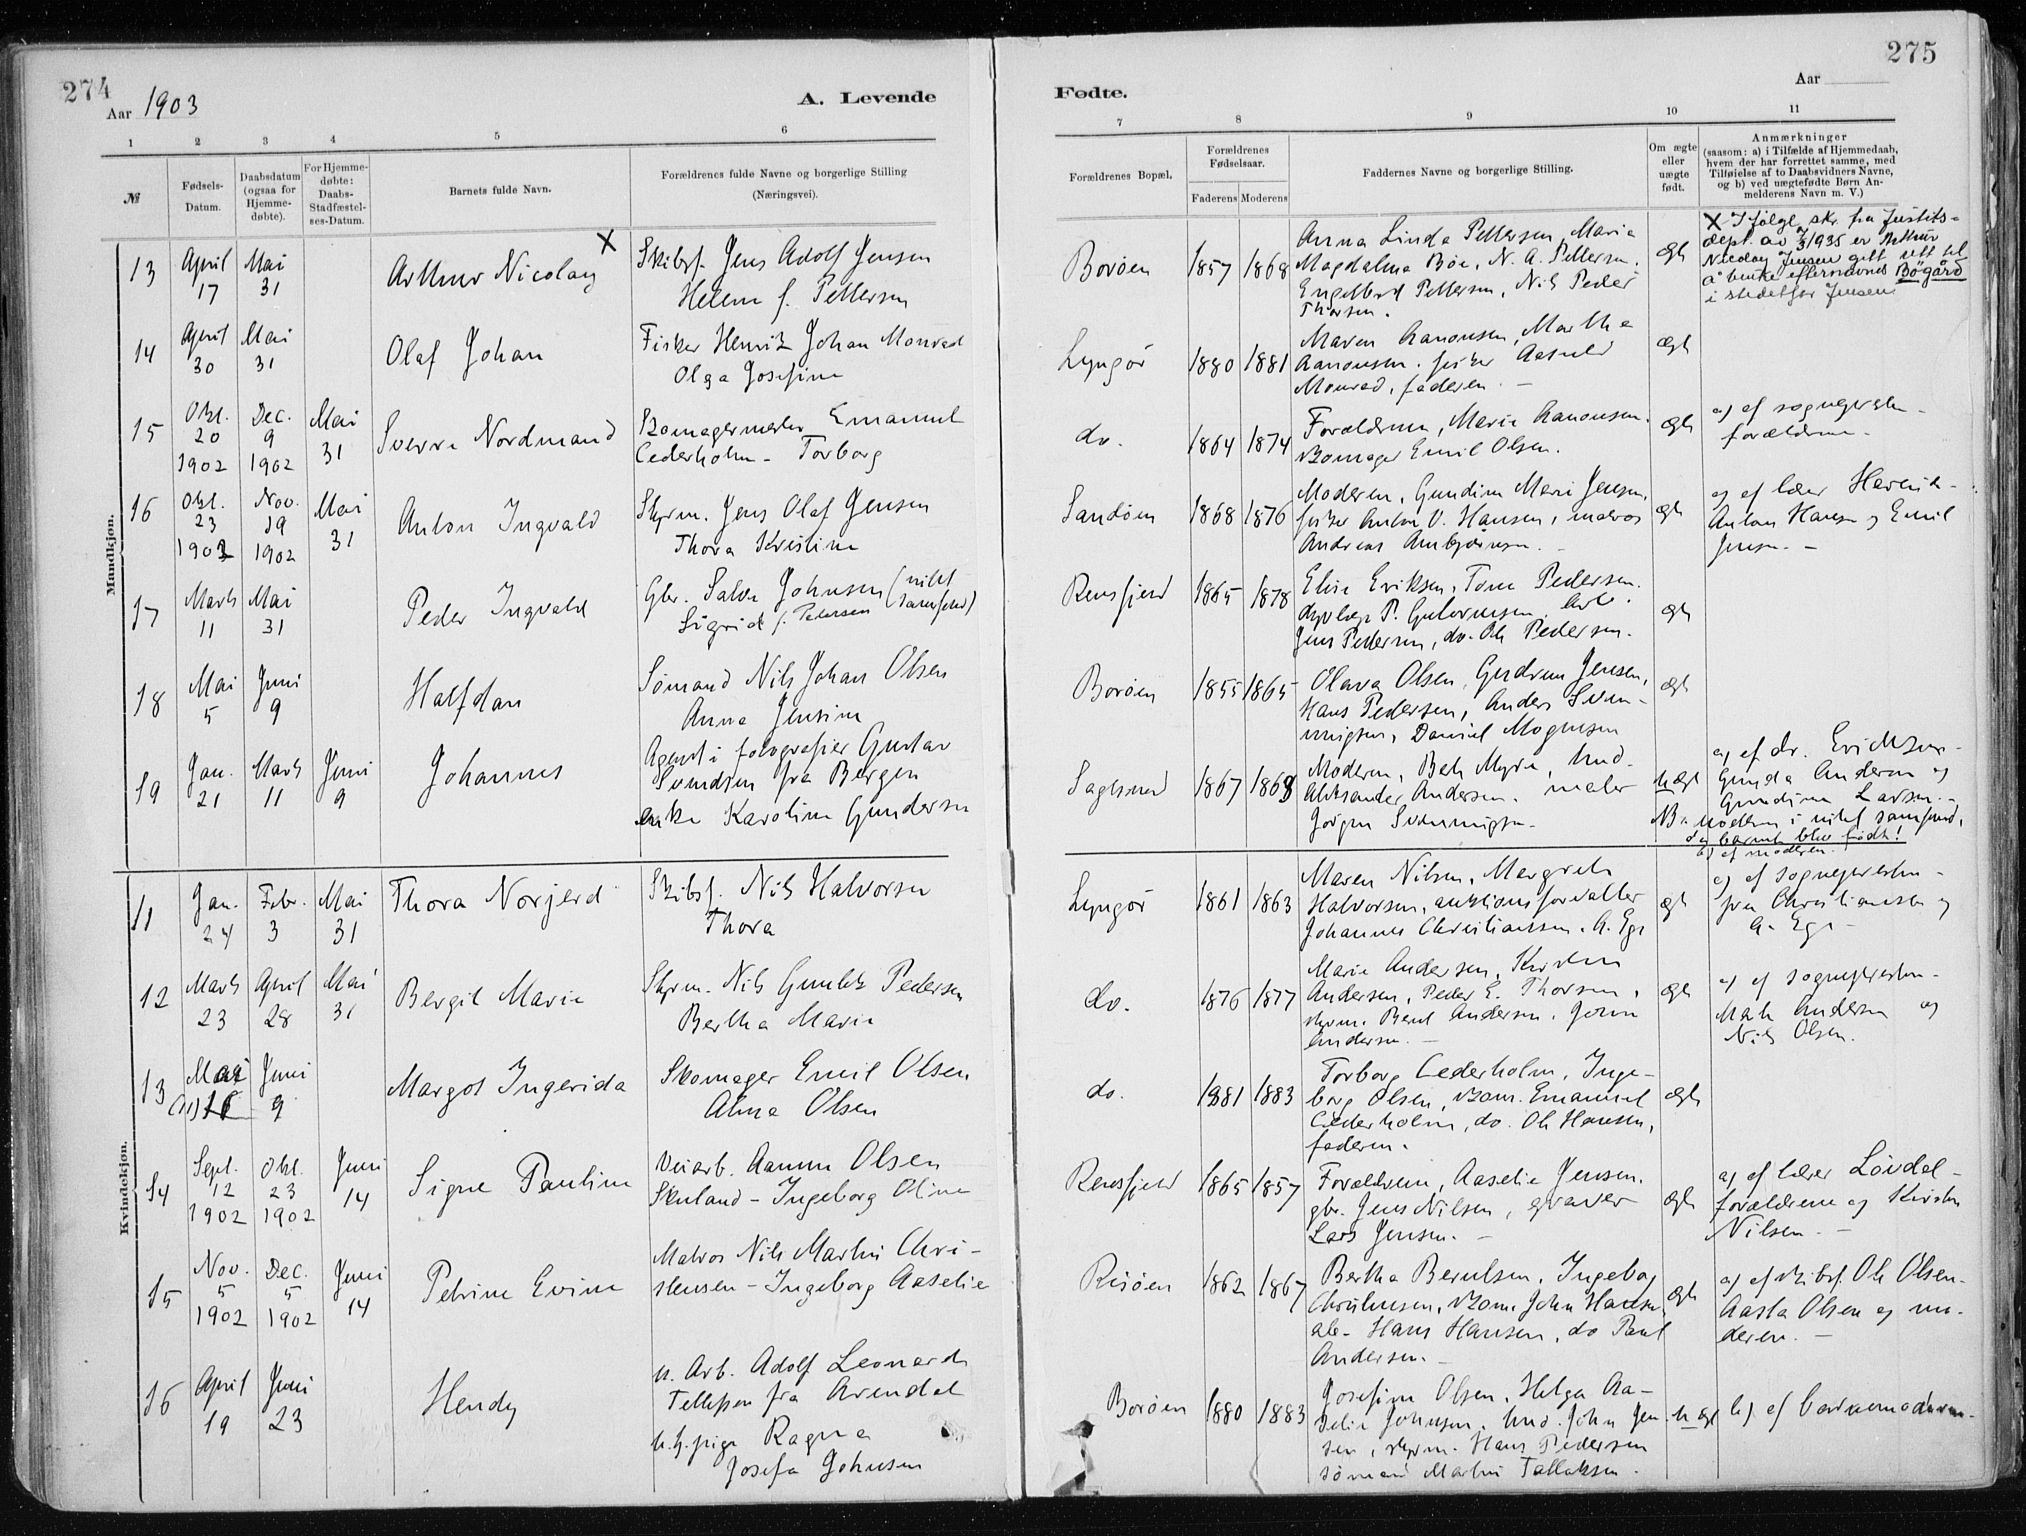 274
Aar 1903
A. Levende
1 2 3 4 5 6
№
Fødsels-
Datum.
Daabsdatum
(ogsaa for
Hjemme-
døbte).
For Hjemme-
døbte:
Daabs-
Stadfæstel-
ses-Datum.
Barnets fulde Navn.
Forældrenes fulde Navne og borgerlige Stilling
(Næringsvei).
Mandkjøn.
13 April 17 Mai 31 Arthur Nicolay X
Skibsf. Jens Adolf Jensen
Helene f. Pettersen
14 April 30 Mai 31 Olaf Johan
Fisker Henrik Johan Monrad
Olga Josefine
15 Okt. 20 1902 Dec. 9 1902 Mai 31 Sverre Nordmand
Skomagermester Emanuel
Cederholm - Torborg
16 Okt. 23 1902 Nov. 19 1902 Mai 31 Anton Ingvald
Styrm. Jens Olaf Jensen
Thora Kristine
17 Marts 11 Mai 31 Peder Ingvald
Gbr. Salve Johnsen (vildt
Sigrid f. Petersen samfund)
18 Mai 5 Juni 9 Halfdan
Sømand Nils Johan Olsen
Anna Jensine
19 Jan. 21 Marts 11 Juni 9 Johannes
Agent i fotografier Gustav
Svendsen fra Bergen
enke Karoline Gundersen
Kvindekjøn.
11 Jan. 24 Febr. 3 Mai 31 Thora Norjerd
Skibsf. Nils Halvorsen
Thora
12 Marts 23 April 28 Mai 31 Bergit Marie
Styrm. Nils Pedersen
Bertha Marie
13 Mai 16 Juni 9 Margot Ingerida
Skomager Emil Olsen
Alma Olsen
14 Sept. 12 1902 Okt. 23 1902 Juni 14 Signe Pauline
Veiarb. Aanen Olsen
Skuland - Ingeborg Oline
15 Nov. 5 1902 Dec. 5 1902 Juni 14 Petrine Evine
Matros Nils Martin Chri-
stensen - Ingeborg Aaselie
16 April 19 Juni 23 Hendy
u. Arb. Adolf Leonard
Tellefsen fra Arendal
u. h. pige Ragna
Josefa Johnsen
275
Aar
Fødte.
7 8 9 10 11
Forældrenes Bopæl.
Forældrenes
Fødselsaar.
Faderens Moderens
Faddernes Navne og borgerlige Stilling.
Om ægte
eller
uægte
født.
Anmærkninger
(saasom: a) i Tilfælde af Hjemmedaab,
hvem der har forrettet samme, med
Tilføielse af to Daabsvidners Navne,
og b) ved uægtefødte Børn An-
melderens Navn m. V.)
Borøen 1857 1868
Anna Linda Pettersen, Marie
Magdalena Bøe, N. A. Pettersen,
Engelbrd Pettersen, Nils Peder
Thorsen.
ægte
X Ifølge skr. fra Justits-
dept. av 1935 er Arthur
Nicolay Jensen gitt rett til
å bruke efternavnet Bøgård
i stedet for Jensen
Lyngør 1880 1881
Maren Aanonsen, Martha
Aanonsen. fisker Aasuld
Monrad, faderen. -
ægte
do. 1864 1874
Forældrene, Marie Aanonsen.
skomager Emil Olsen.
ægte
a) af sognepresten -
forældrene -
Sandøen 1868 1876
Moderen, Gundine Marie Jensen,
fisker Anton V. Hansen, matros
Andreas Ambjørnsen. -
ægte
a) af lærer Havevik -
Anton Hansen og Emil
Jensen. -
Rensfjord 1865 1878
Elise Eriksen, Tone Pedersen.
P. Guttormsen, Arb.
Jens Pedersen, do. Ole Pedersen.
ægte
Borøen 1855 1865
Olava Olsen, Gudrun Jensen,
Hans Pedersen, Anders Sven-
ningsen, Daniel Mogensen
ægte
Saglsund 1867 1868
Moderen, Beh Myre, Und-
Aleksander Andersen. maler
Jørgen Svenningsen -
uægte
a) af dr. Erichsen -
Gunda Andersen og
Gundine Larsen. -
NB. moderen i vildt samfund,
da barnet blev født!
b) af moderen.
Lyngør 1861 1863
Maren Nilsen, Margrete
Halvorsen, auktionsforvalter
Johannes Christianssen, A. Ege
ægte
a) af sognepresten -
fru Christiansen og
A. Ege -
do. 1876 1877
Marie Andersen, Kirsten
Andersen, Peder E. Thorsen,
styrm. Bernt Andersen, John
Andersen. -
ægte
a) af sognepresten -
Andersen og
Nils Olsen.
do. 1881 1883
Torborg Cederholm, Inge-
borg Olsen, skom. Emanuel
Cederholm, do. Ole Hansen,
faderen.
ægte
Rensfjord 1865 1857
Forældrene, Aaselie Jensen.
gbr. Jens Nilsen, graver
Lars Jensen. -
ægte
a) af lærer Løvdal -
forældrene og Kirsten
Nilsen. -
Risøen 1862 1867
Bertha Berntsen, Ingeborg
Christensen, skom. John Hansen,
arb. Hans Hansen, do Paul
Andersen. -
ægte
a) af skibsf. Ole Olsen -
Aasta Olsen og mo-
deren. -
Borøen 1880 1883
Josefine Olsen, Helga Aa-
selie Johnsen, und. John Jen-
sen, styrm. Hans Pedersen
sømand Martin Tallaksen.
uægte
b) af barnemoderen.